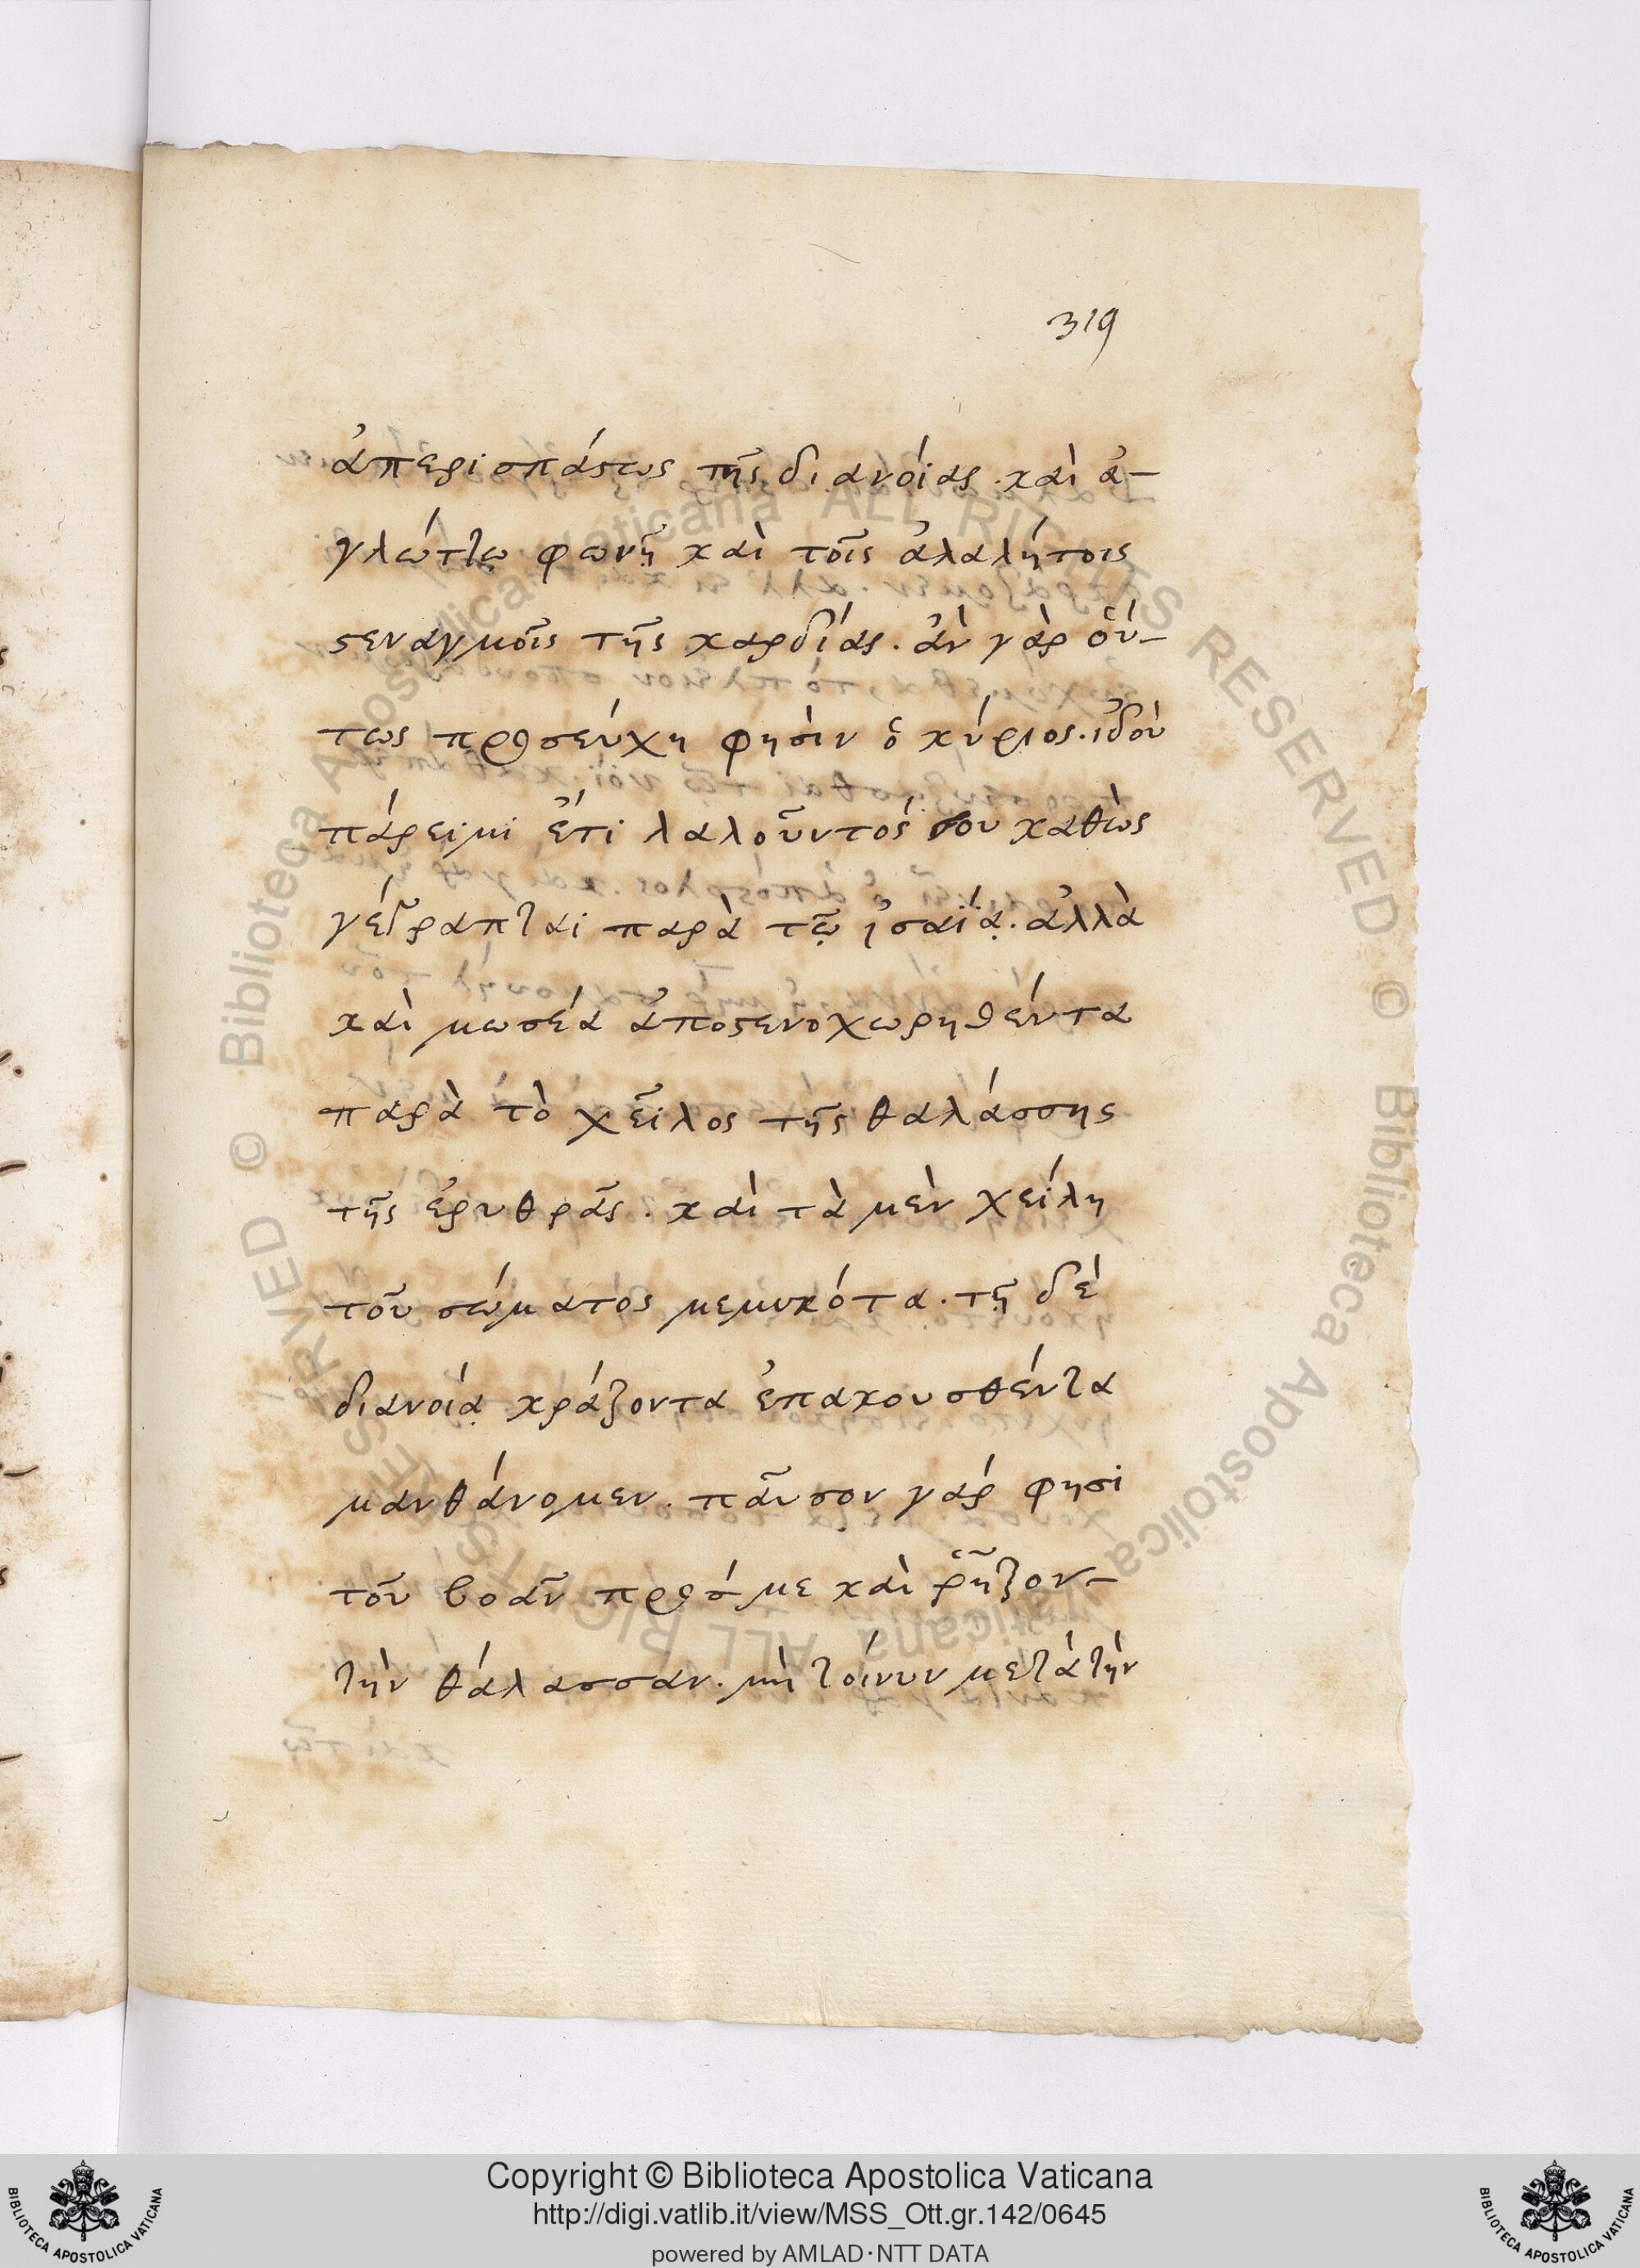 319
ἀπερισπάστως τῆς διανοίας. καὶ ἀ-
γλώττω φωνῇ καὶ τοῖς ἀλαλήτοις
στεναγμοῖς τῆς καρδίας. ἂν γὰρ οὕ-
τως προσεύχη φησὶν ὁ κύριος. ἰδοὺ
πάρειμι ἔτι λαλοῦντός σου καθὼς
γέγραπται παρὰ τῷ ἠσαΐᾳ. ἀλλὰ
καὶ μωσέα ἀποστενοχωρηθέντα
παρὰ τὸ χεῖλος τῆς θαλάσσης
τῆς ἐρυθρᾶς. καὶ τὰ μὲν χείλη
τοῦ σώματος μεμυκότα. τῇ δὲ
διανοίᾳ κράζοντα ἐπακουσθέντα
μανθάνομεν. παῦσον γάρ φησι
τοῦ βοᾶν πρός με καὶ ῥῆξον-
τὴν θάλασσαν. μὴ τοίνυν μετὰ τὴν
Copyright © Biblioteca Apostolica Vaticana
http://digi.vatlib.it/view/MSS_Ott.gr.142/0645
powered by AMLAD·NTT DATA
BIBLIOTECA APOSTOLICA VATICANA
BIBLIOTECA APOSTOLICA VATICANA